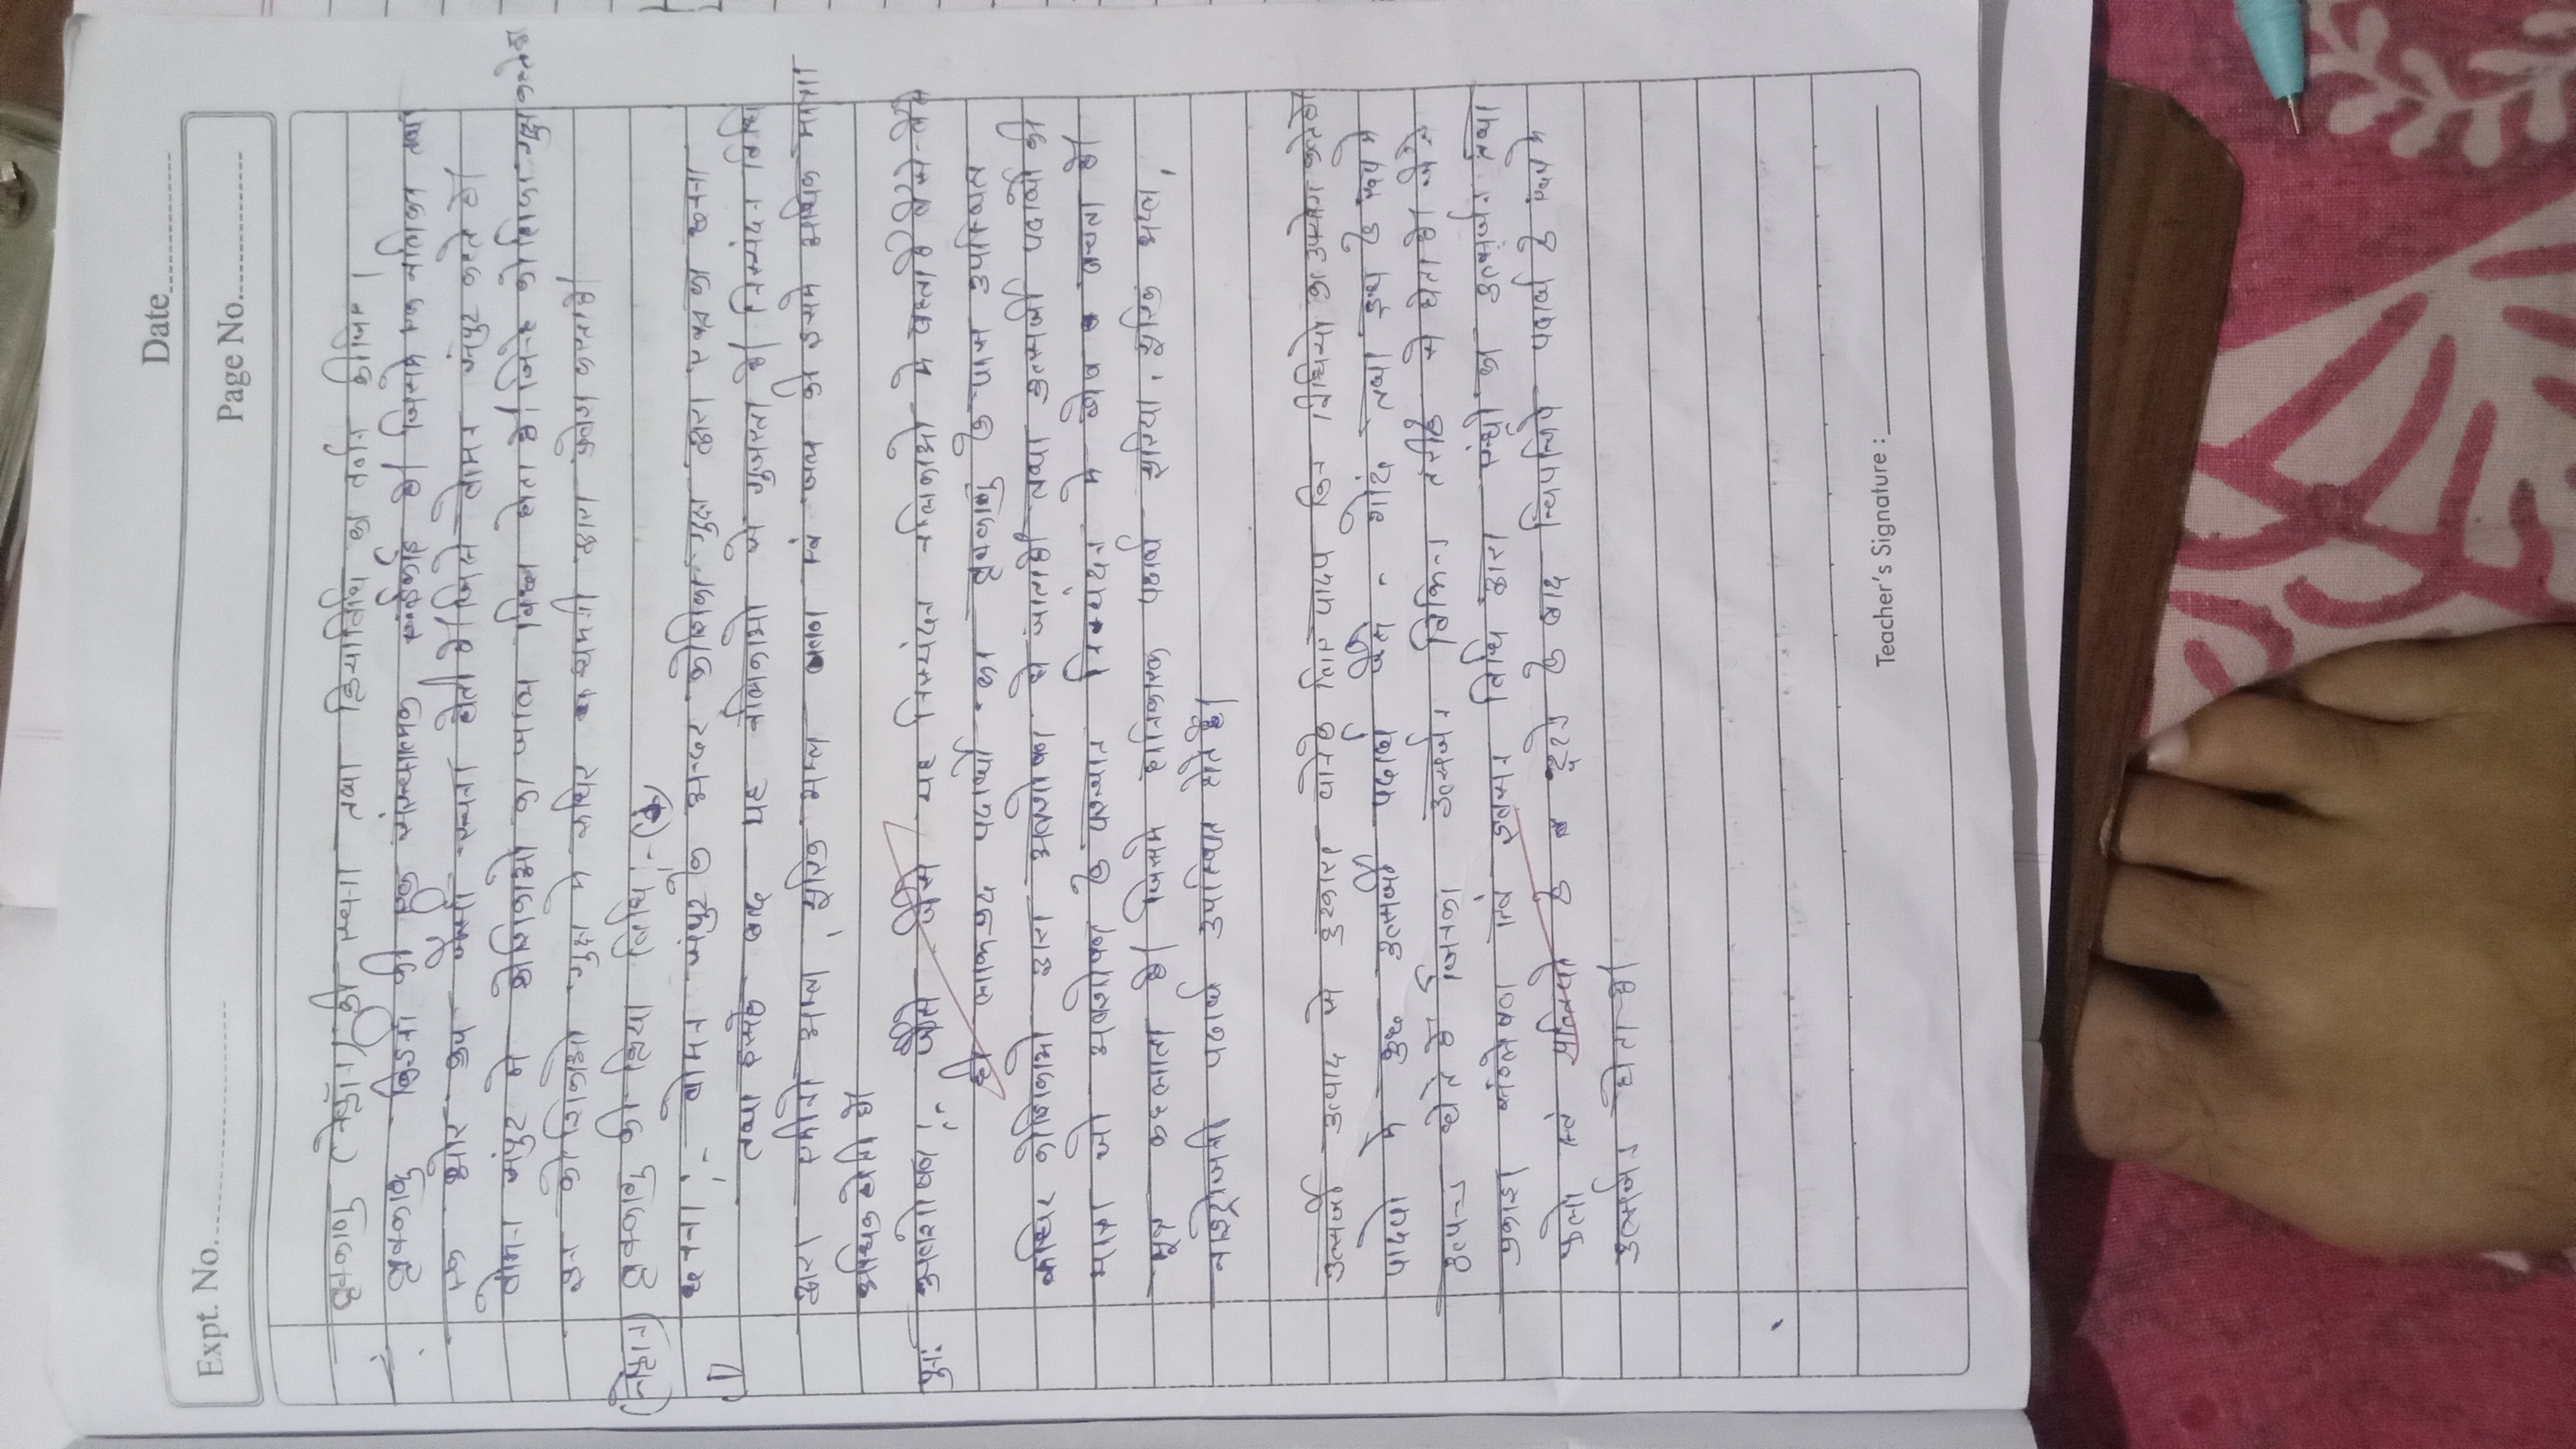 Date
Expt. No.
Page No.
वृक्काणु (नेफ्रॉन) की रचना तथा क्रियाविधि का वर्णन कीजिए।
वृक्काणु किडनी की एक संरचनात्मक इकाई है। जिसमे एक नलिका तथा
एक ओर कप जैसी रचना होती है। जिसे बोमन संपुट कहते है।
बोमन संपुट मे कोशिकाओ का जाल बिछा होता है। जिन्हे कोशिका गुच्छ कहते है
इन कोशिकाओ गुच्छ मे रुधिर धमनी द्वारा प्रवेश करता है।
(नेफ्रान) वृक्काणु की क्रिया विधि :-
1) छनना :- बोमन संपुट के अन्दर कोशिका गुच्छ द्वारा रक्त का छनना
तथा इसके बाद यह नलिकाओ से गुजरता है। निस्यंदन विधि
द्वारा एमीनो अम्ल, यूरिक अम्ल लवण एवं जल की इसमे अधिक मात्रा
अधिक होती है।
पुन: अवशोषण :- जैसे - जैसे यह निस्यंदन नलिकाओ मे बहता है वैसे-वैसे
ही लाभप्रद पदार्थो का वृक्काणु के पास उपस्थित
रुधिर कोशिकाओ द्वारा अवशोषण हो जाता है। तथा उत्सर्जी पदार्थो की
मात्रा जो अवशोषण के पश्चात निस्यंदन मे शेष बचता है।
मूत्र कहलाता है। जिसमे हानिकारक पदार्थ यूरिया, यूरिक अम्ल,
नाइट्रोजनी पदार्थ उपस्थित होते है।
उत्सर्जी उत्पाद से छुटकारा पाने के लिए पादप किन विधियो का उपयोग करते है।
पादपो मे कुछ उत्सर्जी पदार्थ जैसे - गोंद तथा दूध के रूप मे
उत्पन्न होते है जिनका उत्सर्जन विभिन्न तरीके से होता है। जैसे
प्रकाश संश्लेषण एवं श्वसन विधि द्वारा रंध्रो का उत्सर्जन तथा
फलो एवं पत्तियो के टूटने के बाद चिपचिपे पदार्थ के रूप मे
उत्सर्जन होता है।
Teacher's Signature :